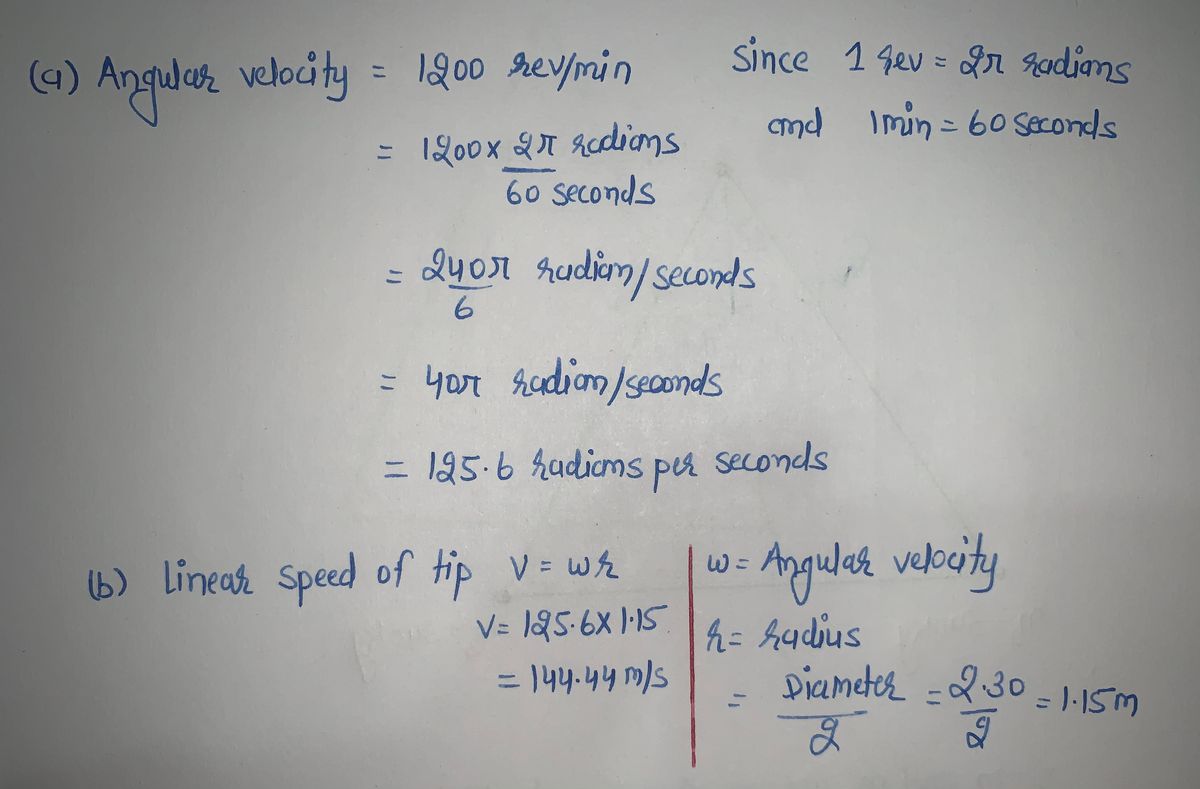 (a) Angular velocity = 1200 rev/min
Since 1 rev = 2π radians
and 1min = 60 seconds
= 1200 x 2π radians
60 seconds
= 240π radian/seconds
6
= 40π radian/seconds
= 125.6 radians per seconds
(b) Linear speed of tip V = wr
V = 125.6 x 1.15
= 144.44 m/s
w = Angular velocity
r = radius
= Diameter = 2.30 = 1.15m
2 2